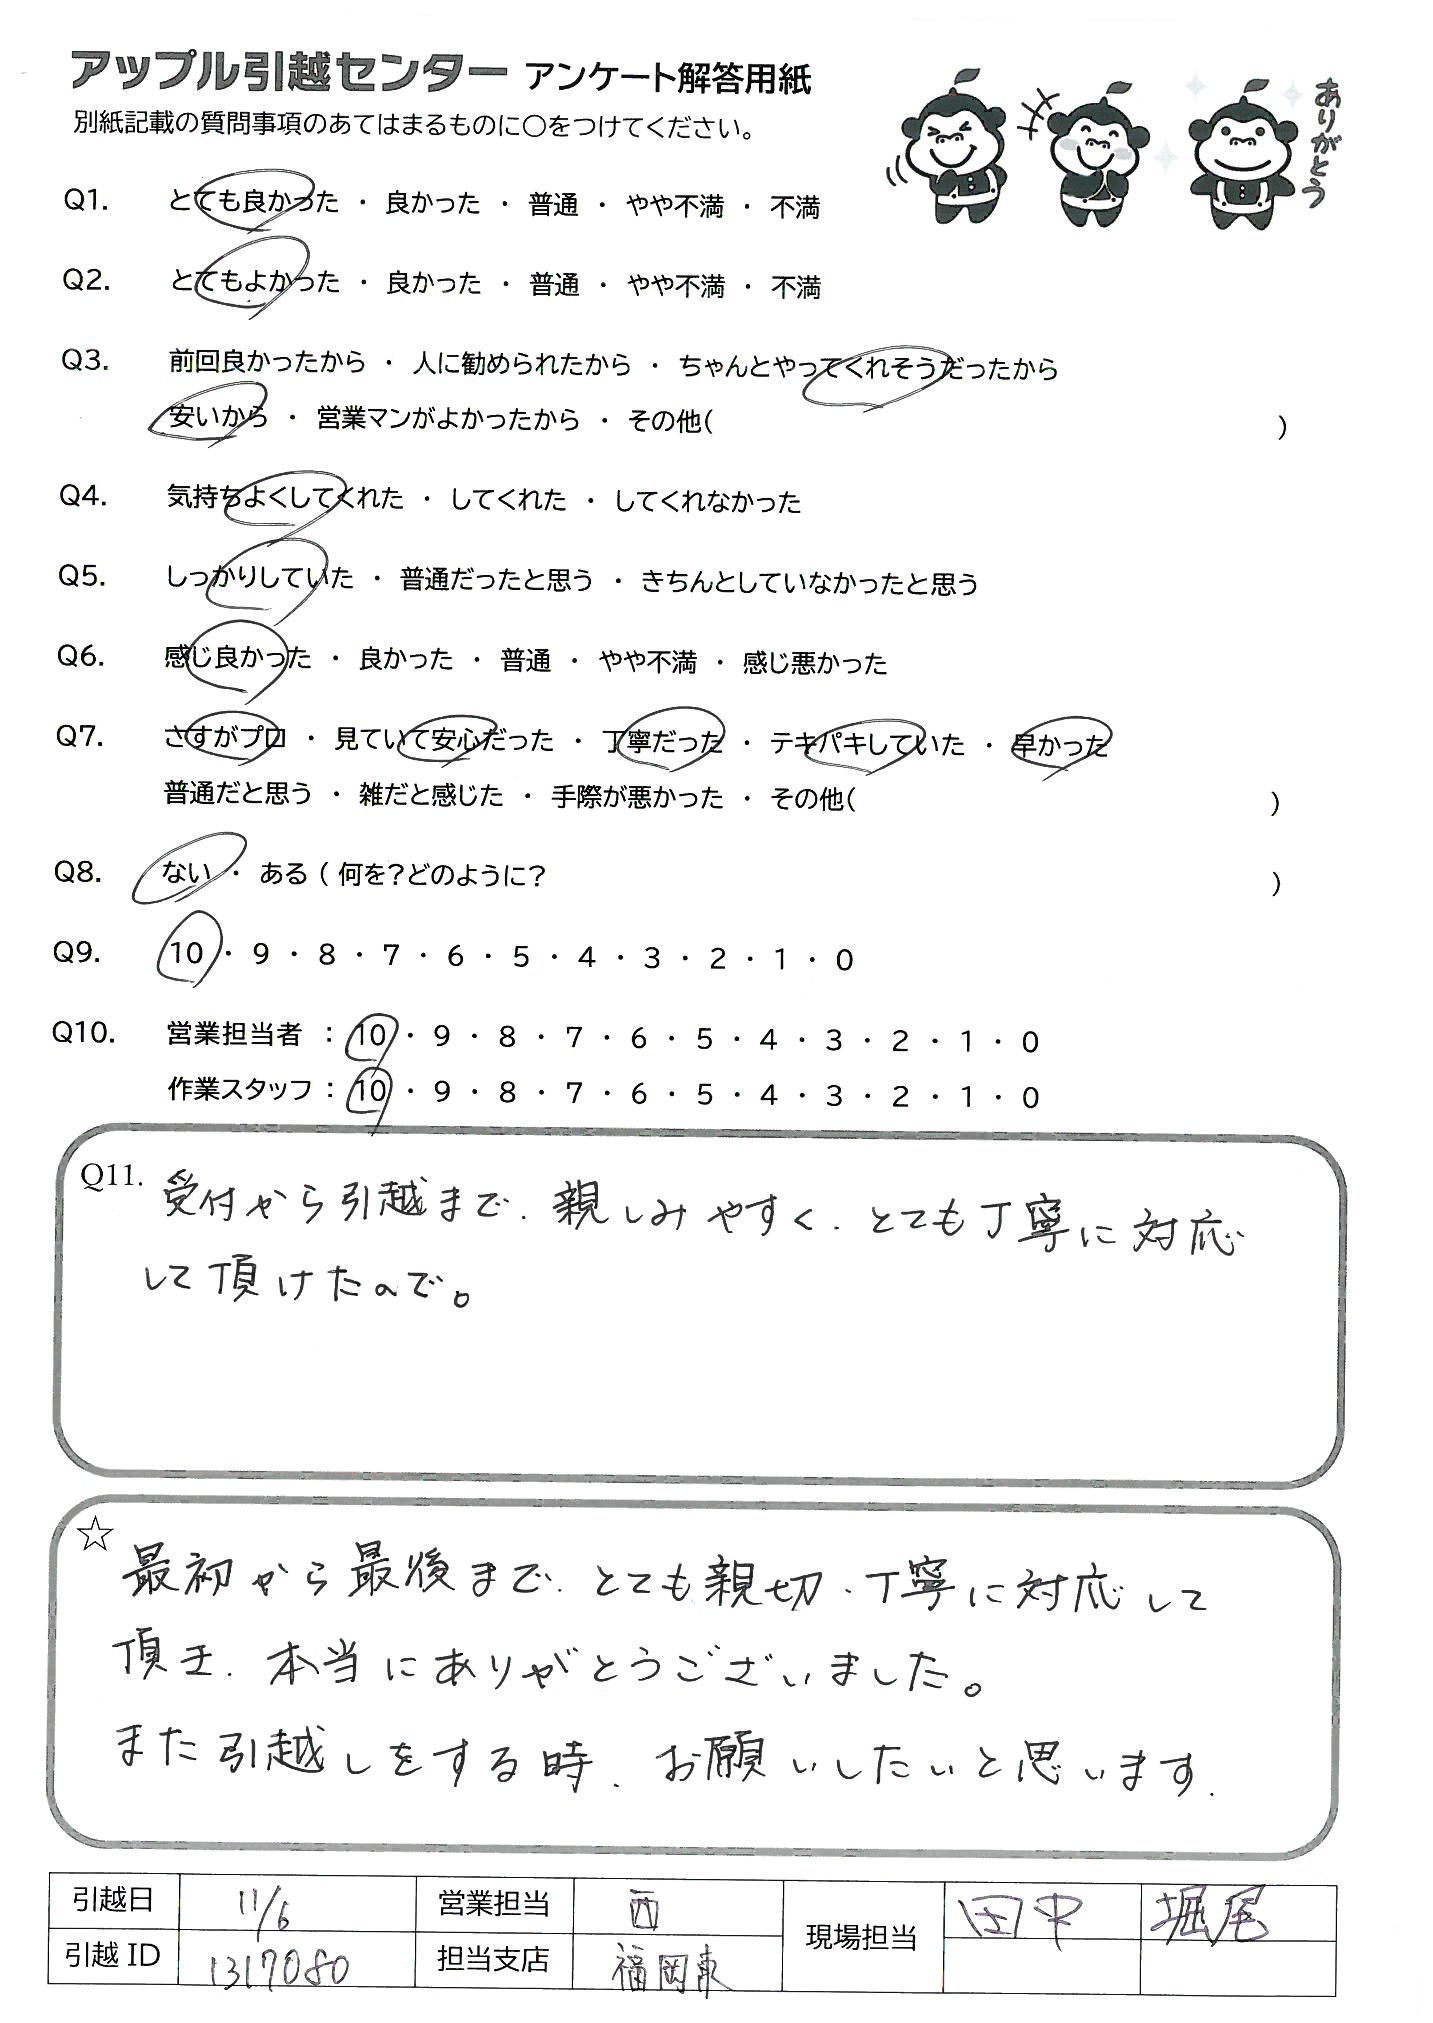 アップル引越センター アンケート解答用紙
別紙記載の質問事項のあてはまるものに○をつけてください。
ありがとう
Q1. とても良かった ・ 良かった ・ 普通 ・ やや不満 ・ 不満
Q2. とてもよかった ・ 良かった ・ 普通 ・ やや不満 ・ 不満
Q3. 前回良かったから ・ 人に勧められたから ・ ちゃんとやってくれそうだったから
安いから ・ 営業マンがよかったから ・ その他( )
Q4. 気持ちよくしてくれた ・ してくれた ・ してくれなかった
Q5. しっかりしていた ・ 普通だったと思う ・ きちんとしていなかったと思う
Q6. 感じ良かった ・ 良かった ・ 普通 ・ やや不満 ・ 感じ悪かった
Q7. さすがプロ ・ 見ていて安心だった ・ 丁寧だった ・ テキパキしていた ・ 早かった
普通だと思う ・ 雑だと感じた ・ 手際が悪かった ・ その他( )
Q8. ない ・ ある ( 何を?どのように? )
Q9. 10 ・ 9 ・ 8 ・ 7 ・ 6 ・ 5 ・ 4 ・ 3 ・ 2 ・ 1 ・ 0
Q10. 営業担当者 : 10 ・ 9 ・ 8 ・ 7 ・ 6 ・ 5 ・ 4 ・ 3 ・ 2 ・ 1 ・ 0
作業スタッフ : 10 ・ 9 ・ 8 ・ 7 ・ 6 ・ 5 ・ 4 ・ 3 ・ 2 ・ 1 ・ 0
Q11. 受付から引越まで、親しみやすく、とても丁寧に対応
して頂けたので。
☆ 最初から最後まで、とても親切、丁寧に対応して
頂き、本当にありがとうございました。
また引越しをする時、お願いしたいと思います.
引越日 11/6 営業担当 西 現場担当 田中 堀尾
引越 ID 1317080 担当支店 福岡東